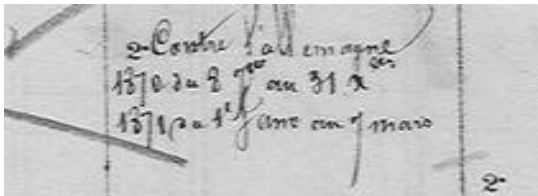 2- Contre l'allemagne
1870 du 8 7bre au 31 Xbre
1871, du 1er Janv au 7 mars
2-